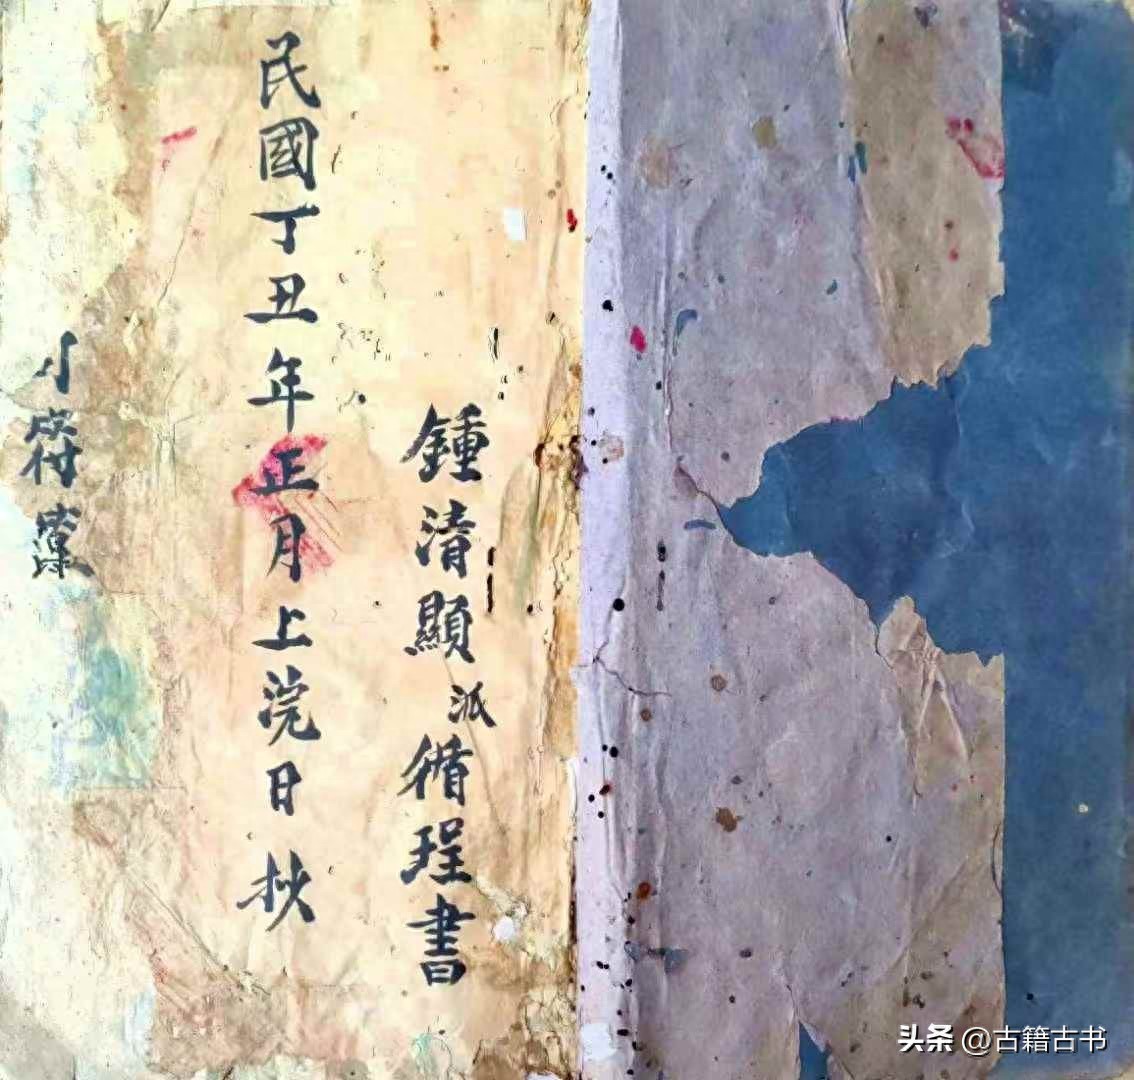 鍾清顯派循珵書
民國丁丑年正月上浣日抄
小
头条 @古籍古书